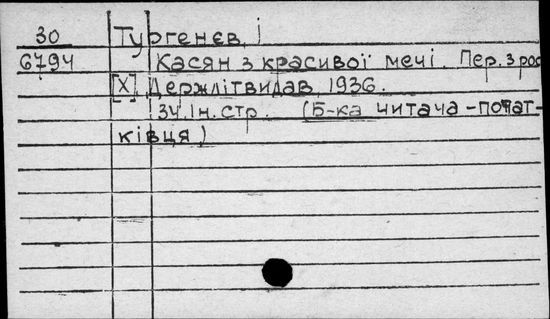 30 Тургенєв, І
6794 Касян з красивої мечі. Пер. з рос
[X] Держлітвидав, 1936.
34, ін. стр. (Б-ка читача-почат-
ківця)